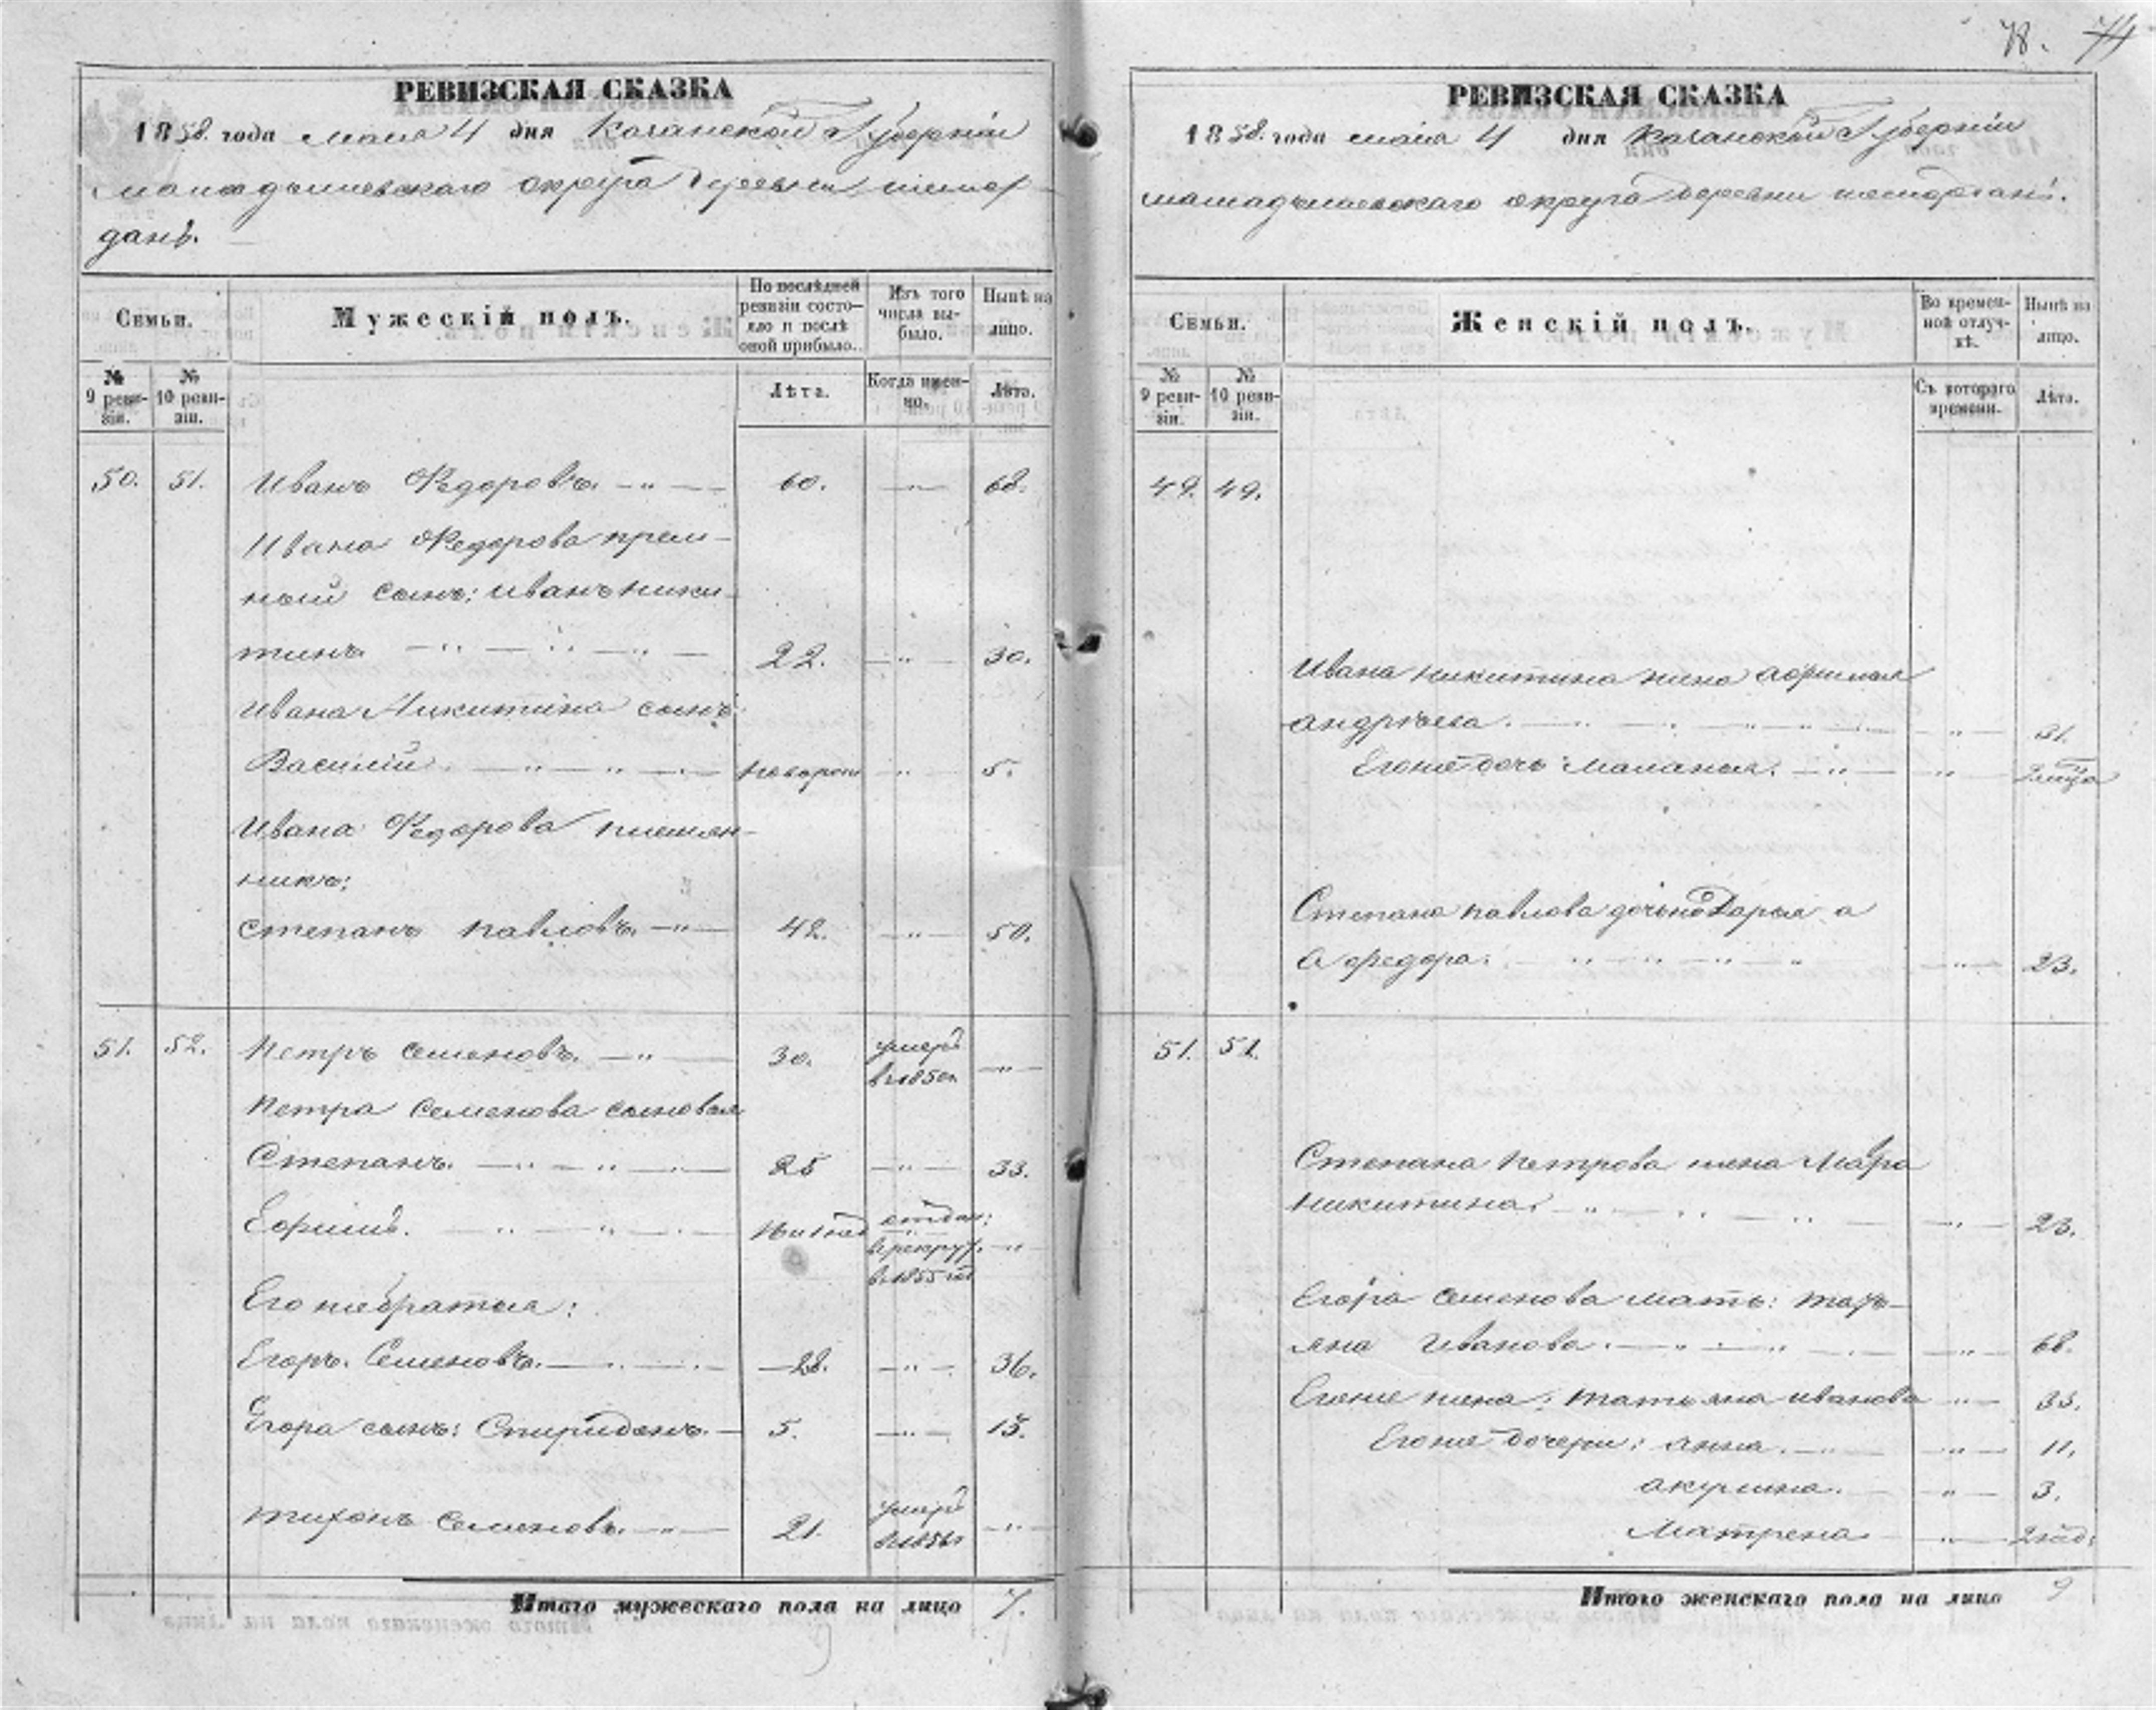 78. 74
РЕВИЗСКАЯ СКАЗКА
1858. года мая 4 дня Казанской Губерніи
мамадышевскаго округа деревни шемор-
данъ.
Семьи.
Мужескій полъ.
По послѣдней ревизіи состо-
яло и послѣ оной прибыло.
Изъ того числа вы-
было.
Нынѣ на лицо.
№ 9 реви-
зіи.
№ 10 реви-
зіи.
Лѣта.
Когда имен-
но.
Лѣта.
50. 51. Иванъ Федоровъ. 60. 68.
Ивана Федорова прем-
ный сынъ: иванъ ники-
тинъ 22. 30.
Ивана Никитина сынъ:
Василій новорож 5.
Ивана Федорова племян-
никъ:
Степанъ павловъ. 42. 50.
51. 52. Петръ Семеновъ. 30. умеръ в 1850.
Петра Семенова сыновья
Степанъ. 25 33.
Ефимъ. отдан: в рекрут. в 1855 год
Его же братья:
Егоръ. Семеновъ. 28. 36.
Егора сынъ: Спиридонъ. 5. 13.
тихонъ Семеновъ. 21. умеръ
Итого мужескаго пола на лицо 7.
РЕВИЗСКАЯ СКАЗКА
1858. года мая 4 дня Казанской Губерніи
мамадышевскаго округа деревни шеморданъ.
Семьи.
Женскій полъ.
Во времен-
ной отлуч-
кѣ.
Нынѣ на лицо.
№ 9 реви-
зіи.
№ 10 реви-
зіи.
Съ котораго времени.
Лѣта.
49. 49.
Ивана никитина жена афимья
андрѣева. 31.
Егоже дочь: маланья.
Степана павлова дочь Дарья а
а федора. 23.
51. 51.
Степана Петрова жена Мавра
никитина. 23.
Егора Семенова мать: тать-
яна Иванова. 68.
Егоже жена: татьяна иванова 35.
Егоже дочери: анна. 11.
акулина. 3.
Матрена. 2 нед:
Итого женскаго пола на лицо 9